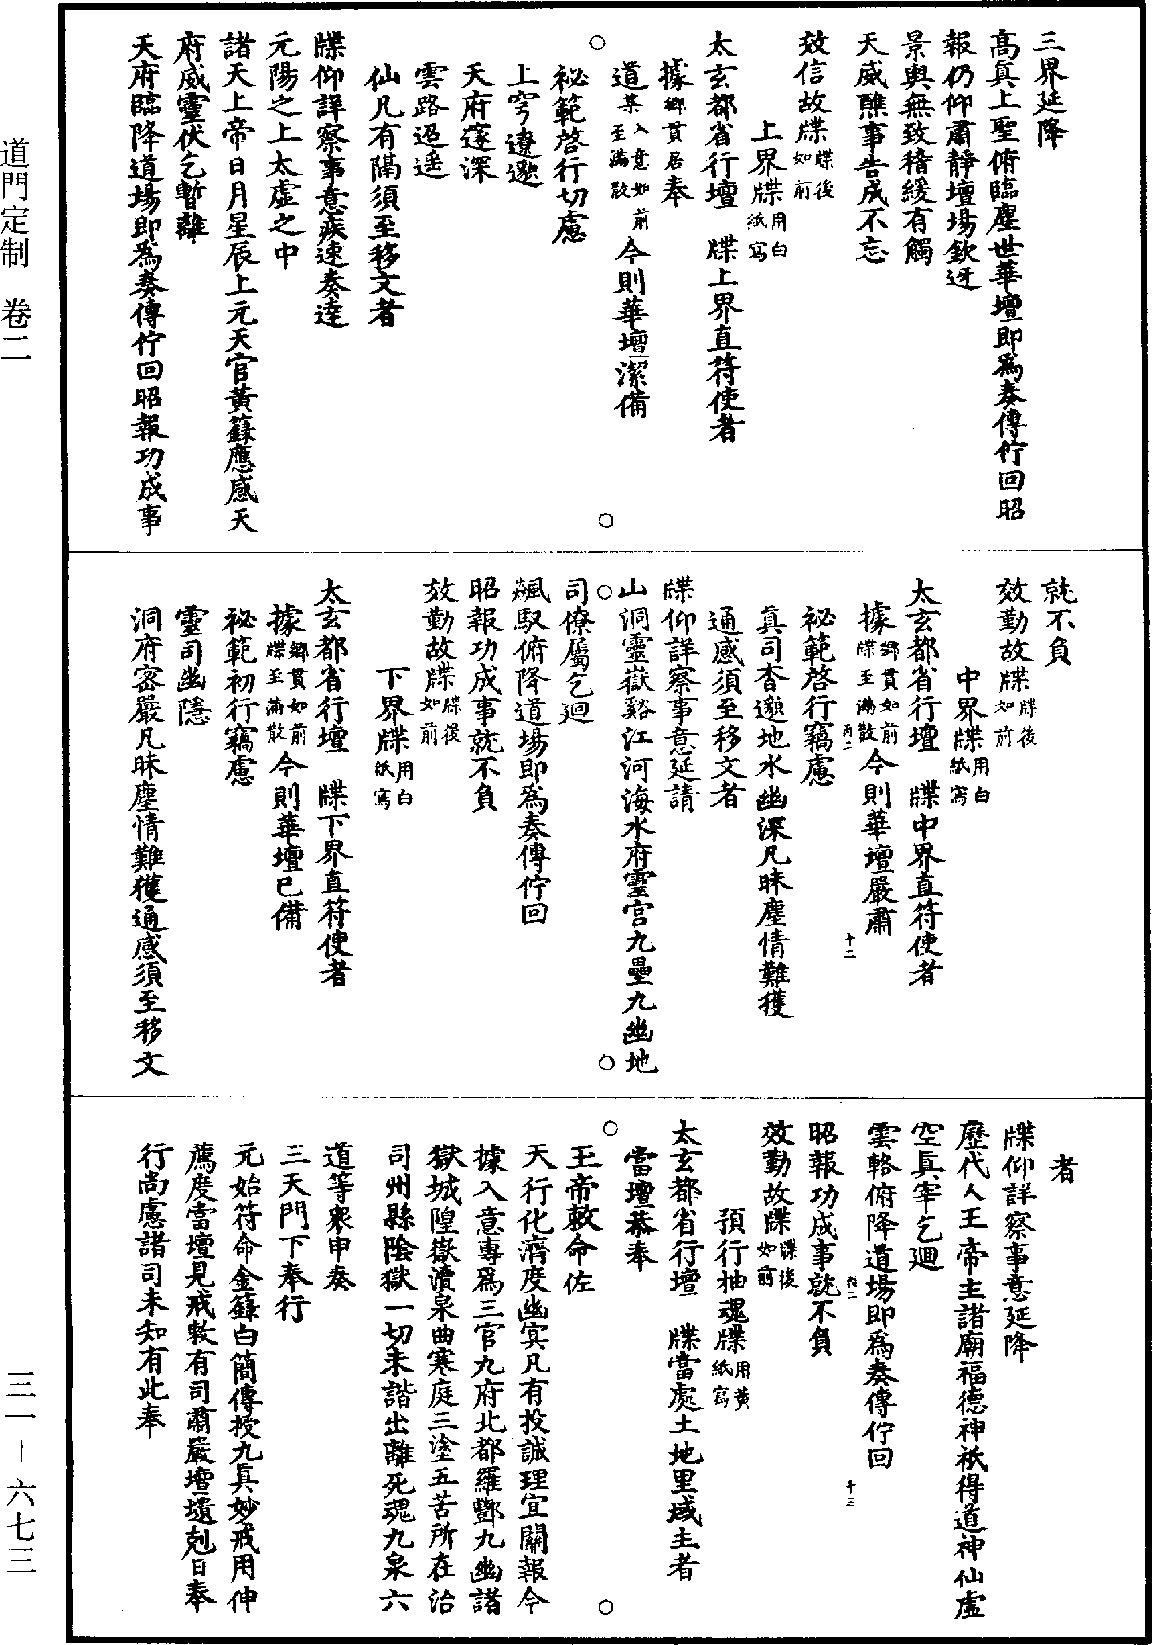 三界延降
高真上聖俯臨塵世華壇即爲奏傳佇回昭
報仍仰肅靜壇場欽迓
景輿無致稽緩有觸
天威醮事告成不忘
效信故牒牒後如前
上界牒用白紙寫
太玄都省行壇　牒上界直符使者
據鄉貫居奉
道某入意如前至滿散今則華壇潔備
祕範啓行切慮
上穹遼邈
天府邃深
雲路迢遥
仙凡有隔須至移文者
牒仰詳察事意疾速奏達
元陽之上太虛之中
諸天上帝日月星辰上元天官黃籙應感天
府威靈伏乞暫離
天府臨降道場即爲奏傳佇回昭報功成事
就不負
效勤故牒牒後如前
中界牒用白紙寫
太玄都省行壇　牒中界直符使者
據鄉貫如前牒至滿散今則華壇嚴肅
丙二
十二
祕範啓行竊慮
真司杳邈地水幽深凡昧塵情難獲
通感須至移文者
牒仰詳察事意延請
山洞靈嶽谿江河海水府靈宫九壘九幽地
司僚屬乞迴
飆馭俯降道場即爲奏傳佇回
昭報功成事就不負
效勤故牒牒後如前
下界牒用白紙寫
太玄都省行壇　牒下界直符使者
據鄉貫如前牒至滿散今則華壇已備
祕範初行竊慮
靈司幽隱
洞府密嚴凡昧塵情難獲通感須至移文
者
牒仰詳察事意延降
歷代人王帝主諸廟福德神祇得道神仙虛
空真宰乞迴
雲輅俯降道場即爲奏傳佇回
十三
昭報功成事就不負
效勤故牒牒後如前
預行抽魂牒用黃紙寫
太玄都省行壇　牒當處土地里域主者
當壇恭奉
王帝敕命佐
天行化濟度幽冥凡有投誠理宜關報今
據入意專爲三官九府北都羅酆九幽諸
獄城隍嶽瀆泉曲寒庭三塗五苦所在治
司州縣陰獄一切未諧出離死魂九泉六
道等衆申奏
三天門下奉行
元始符命金籙白簡傳授九真妙戒用伸
薦度當壇見戒敕有司肅嚴壇墠剋日奉
行尚慮諸司未知有此奉
道門定制　卷二
三一－六七三